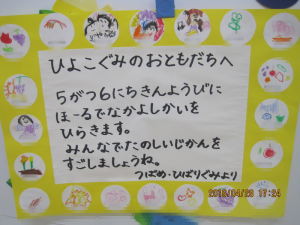 ひよこぐみのおともだちへ
5がつ6にちきんようびに
ほーるでなかよしかいを
ひらきます。
みんなでたのしいじかんを
すごしましょうね。
つばめ・ひばりぐみより